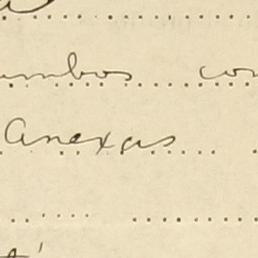 umbos con
Anexas